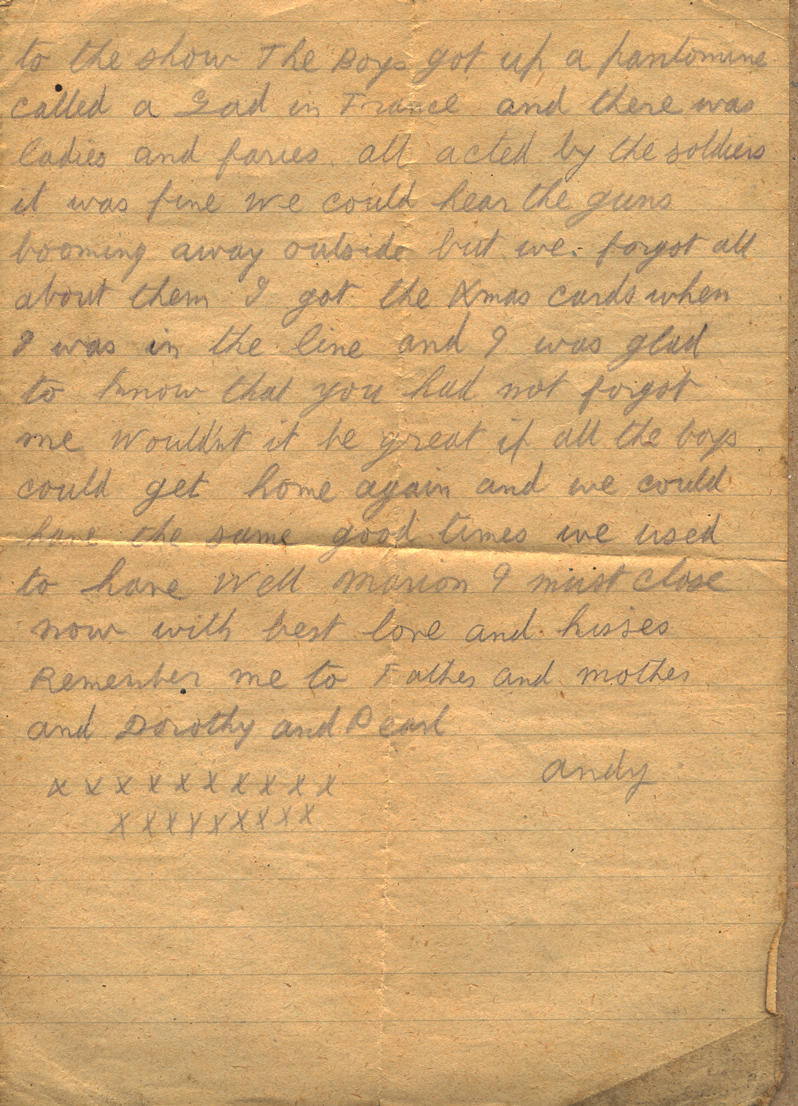 to the show The Boys got up a pantomine
called a Gad in France and there was
Ladies and faries. all acted by the soldiers
it was fine We could hear the guns
booming away outside but we. forgot all
about them I got the Xmas cards when
I was in the line and I was glad
to know that you had not forgot
me Would'nt it be great if all the boys
could get home again and we could
have the same good times we used
to have Well Marion I must close
now with best love and kisses
Remember me to Father and mother
and Dorothy and Pearl
Andy
x x x x x x x x x x
x x x x x x x x x